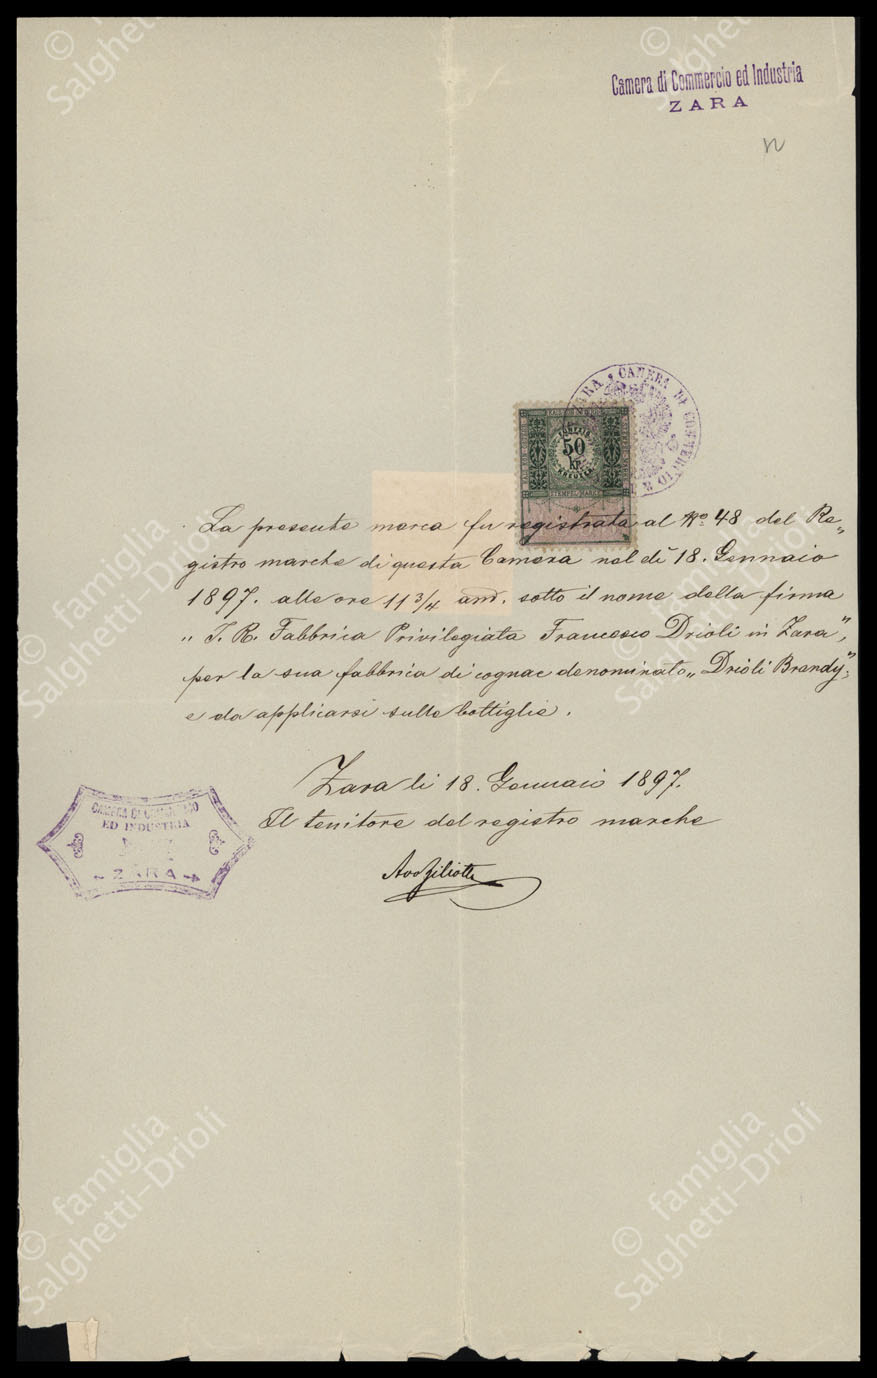 Camera di Commercio ed Industria
ZARA
CAMERA DI COMMERCIO
50
Kr
STEMPEL MARKE
La presente marca fu registrata al No. 48 del Re„
gistro marche di questa Camera nel dì 18. Gennaio
1897. alle ore 11 3/4 ant. sotto il nome della firma
„I. R. Fabbrica Privilegiata Francesco Drioli in Zara",
per la sua fabbrica di cognac denominato „Drioli Brandy",
e da applicarsi sulle bottiglie.
Zara li 18. Gennaio 1897.
Il tenitore del registro marche
CAMERA DI COMMERCIO
ED INDUSTRIA
ZARA
© famiglia
Salghetti-Drioli
© famiglia
Salghetti-Drioli
© famiglia
Salghetti-Drioli
© famiglia
Salghetti-Drioli